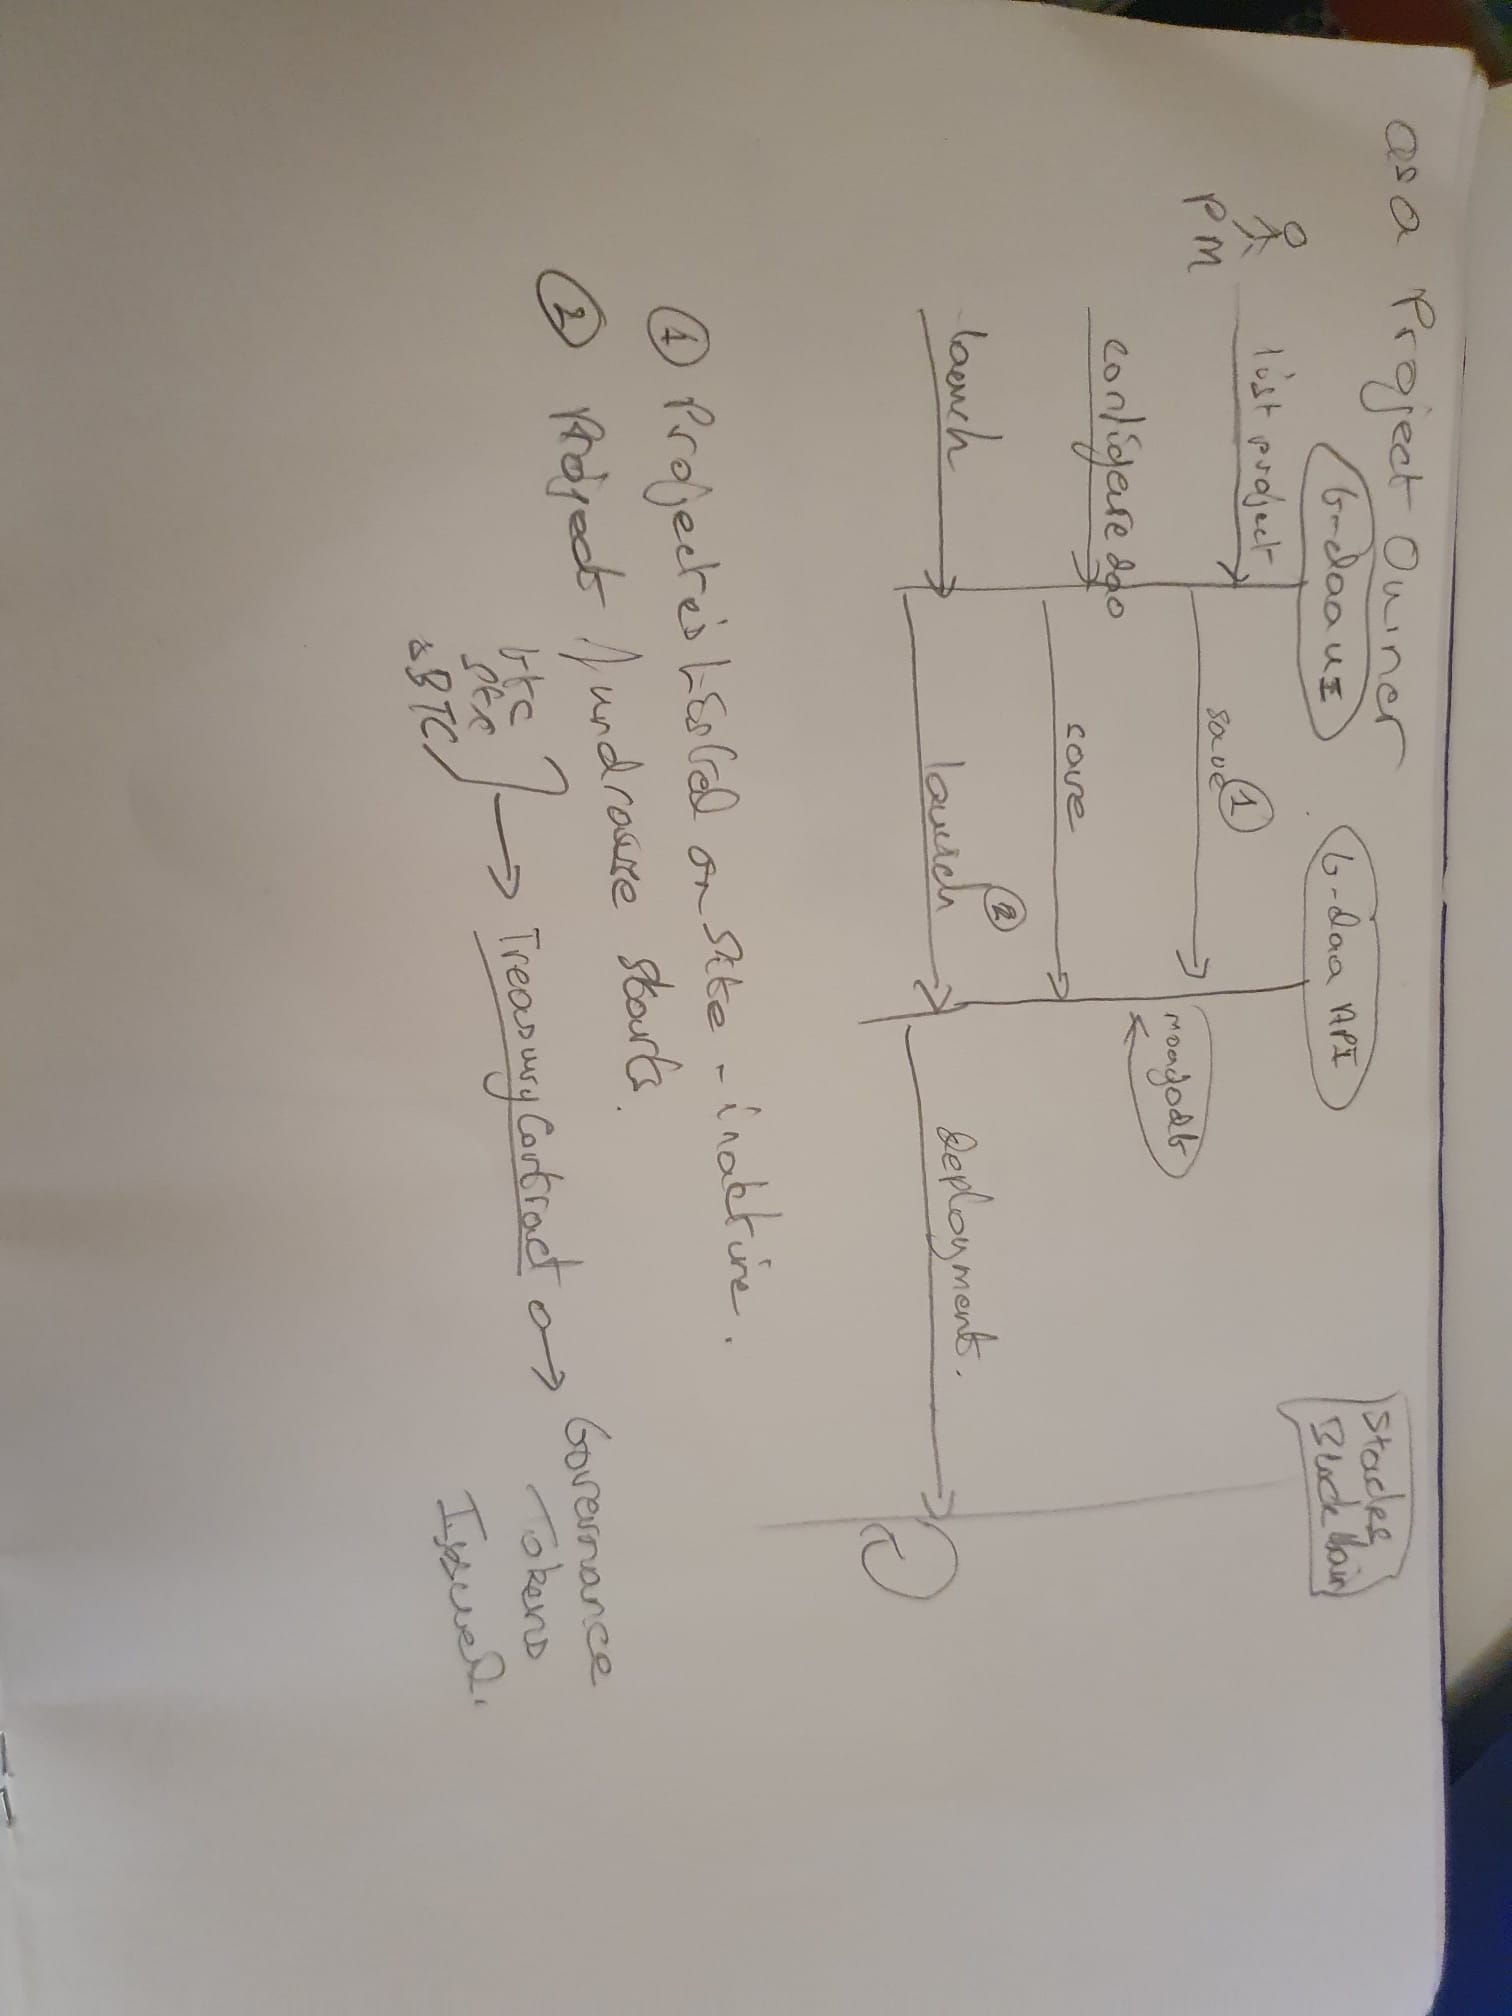 as a Project Owner
b-dao UI
b-dao API
Stacks
Blockchain
PM
list project
save ①
mongodb
configure dao
save
launch
launch ②
Deployment.
① Project is Listed on Site - inactive.
② Project fundraise starts.
btc
stx
sBTC
→ Treasury Contract → Governance
Tokens
Issued.